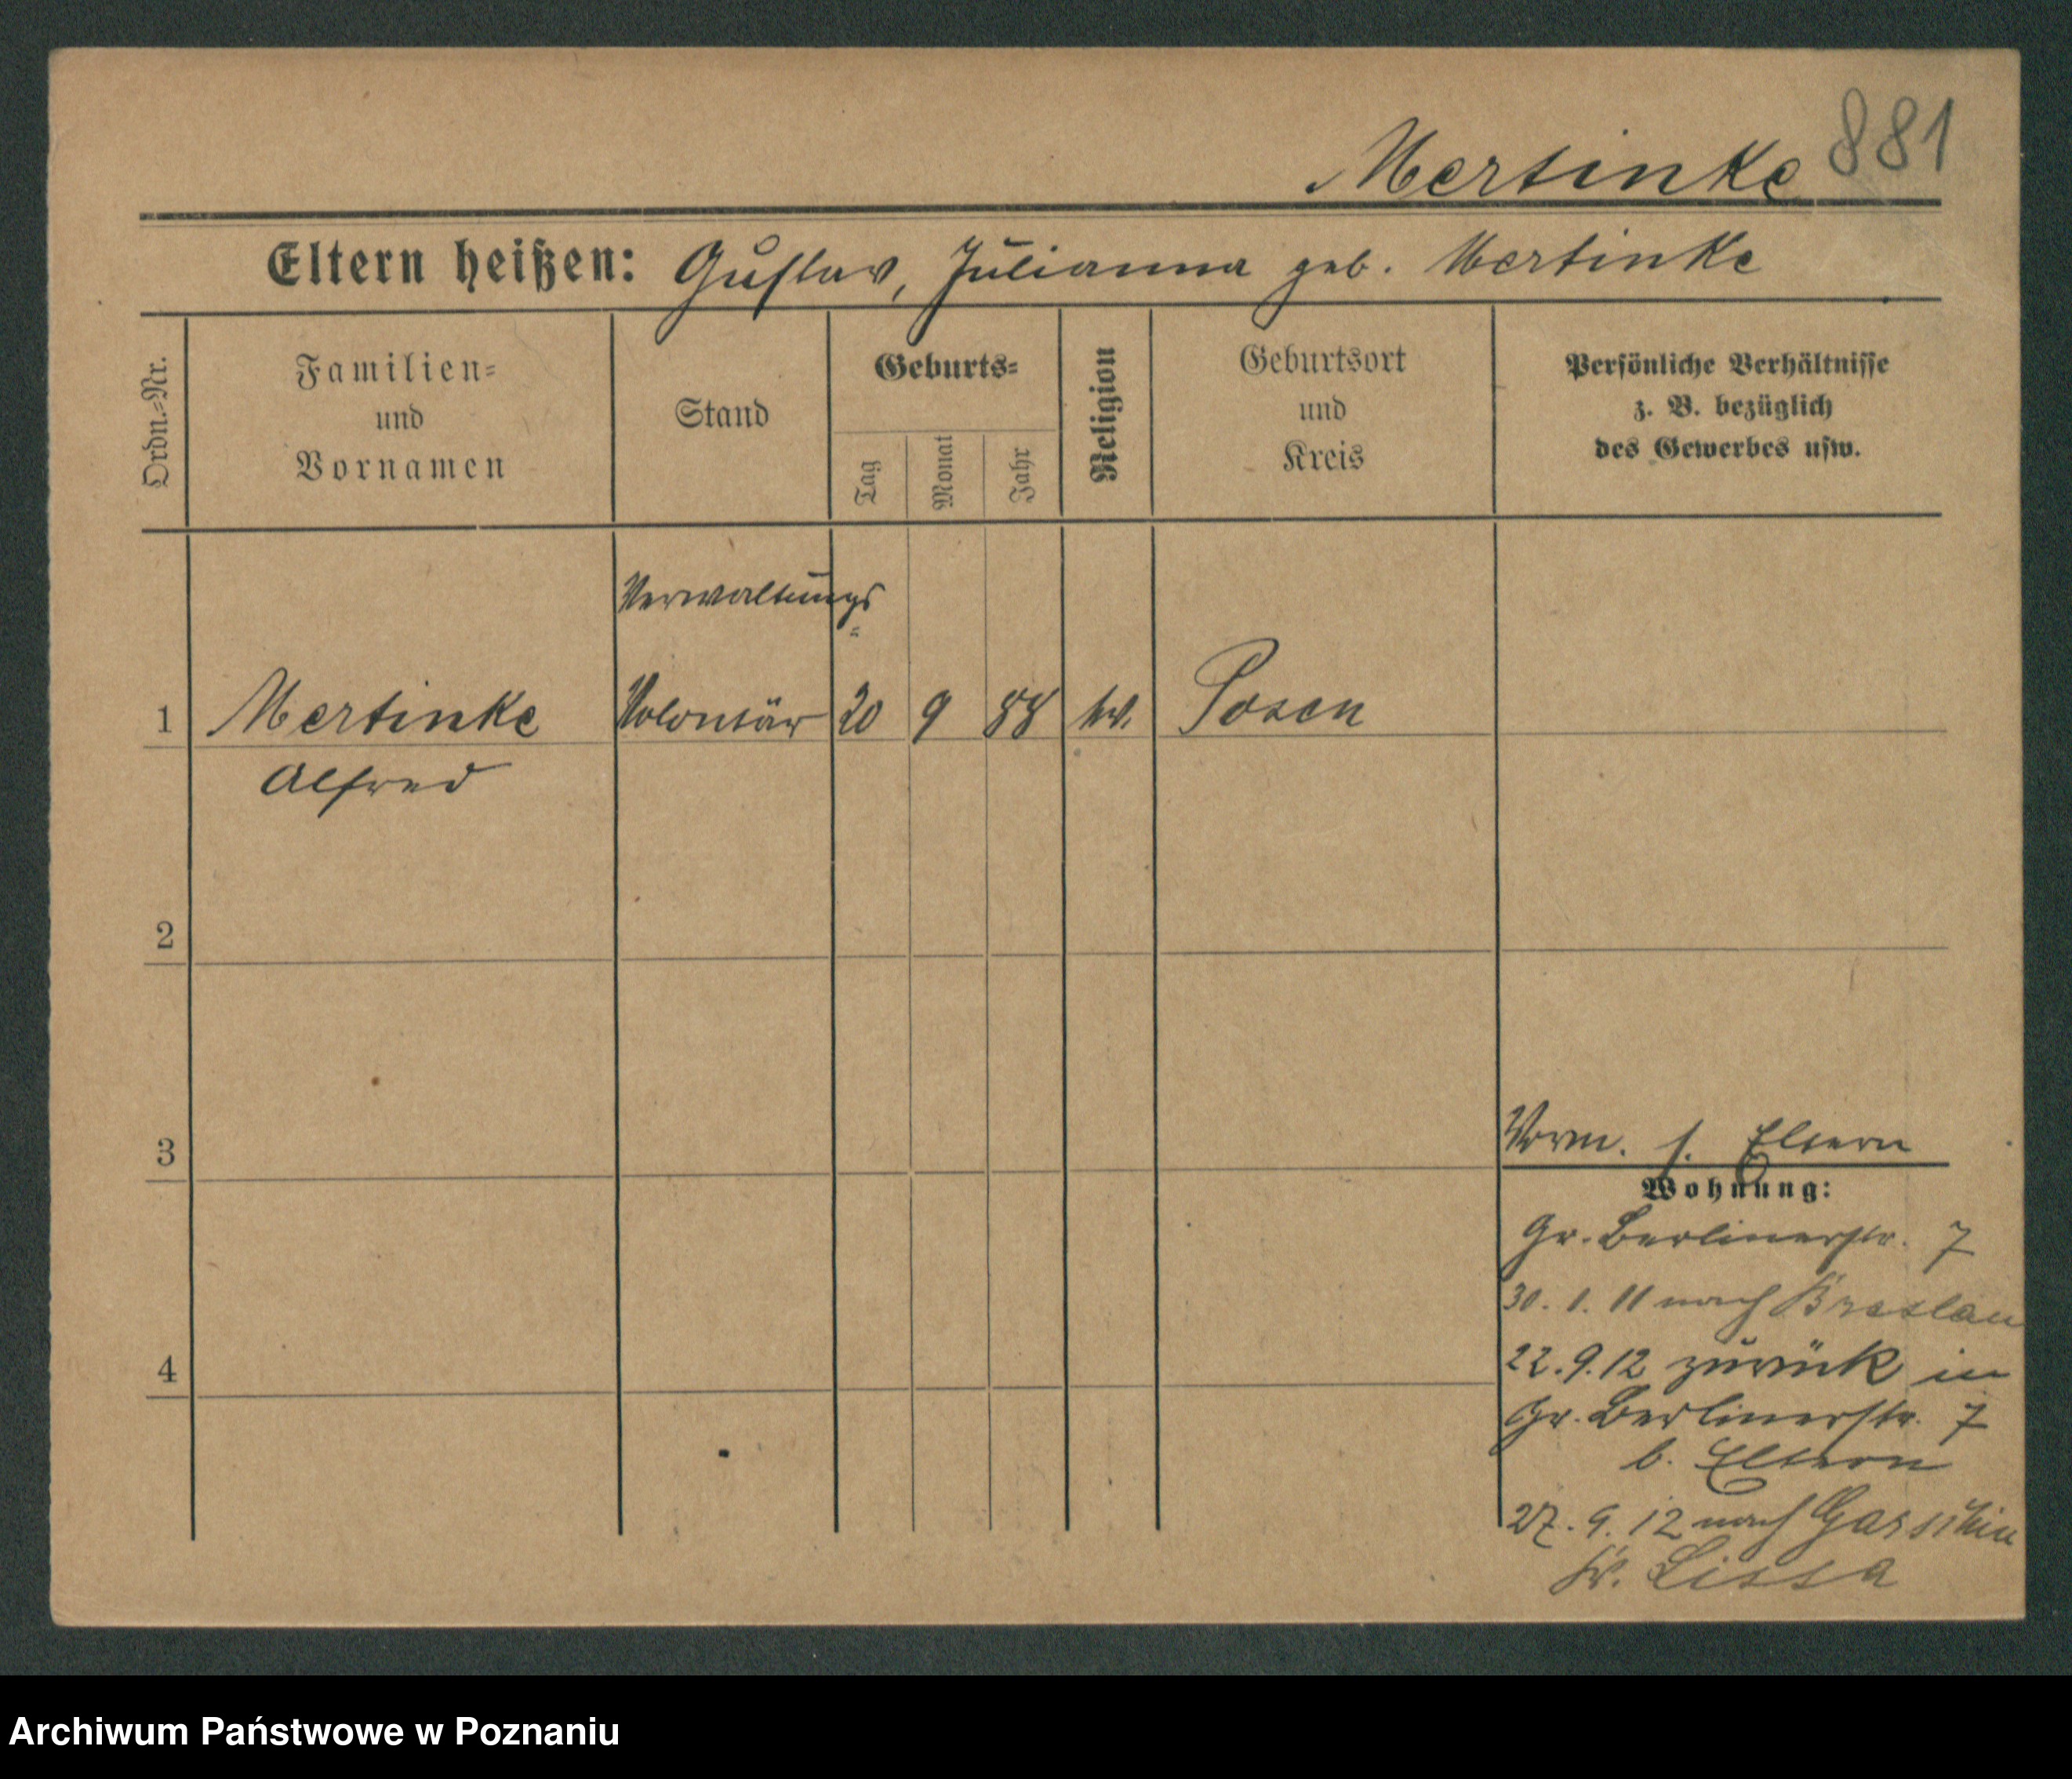 881
Mertinke
Eltern heißen: Gustav, Julianna geb. Mertinke
Ordn.-Nr.
Familien=
und
Vornamen
Stand
Geburts=
Tag
Monat
Jahr
Religion
Geburtsort
und
Kreis
Persönliche Verhältnisse
z. B. bezüglich
des Gewerbes usw.
Verwaltungs
=
1 Mertinke Volontär 20 9 88 Posen
Alfred
2
3
Vorm. s. Eltern
Wohnung:
Gr. Berlinerstr. 7
30. 1. 11 nach Breslau
4
22. 9. 12 zurück in
Gr. Berlinerstr. 7
b. Eltern
27. 9. 12 nach
Kr. Lissa
Archiwum Państwowe w Poznaniu